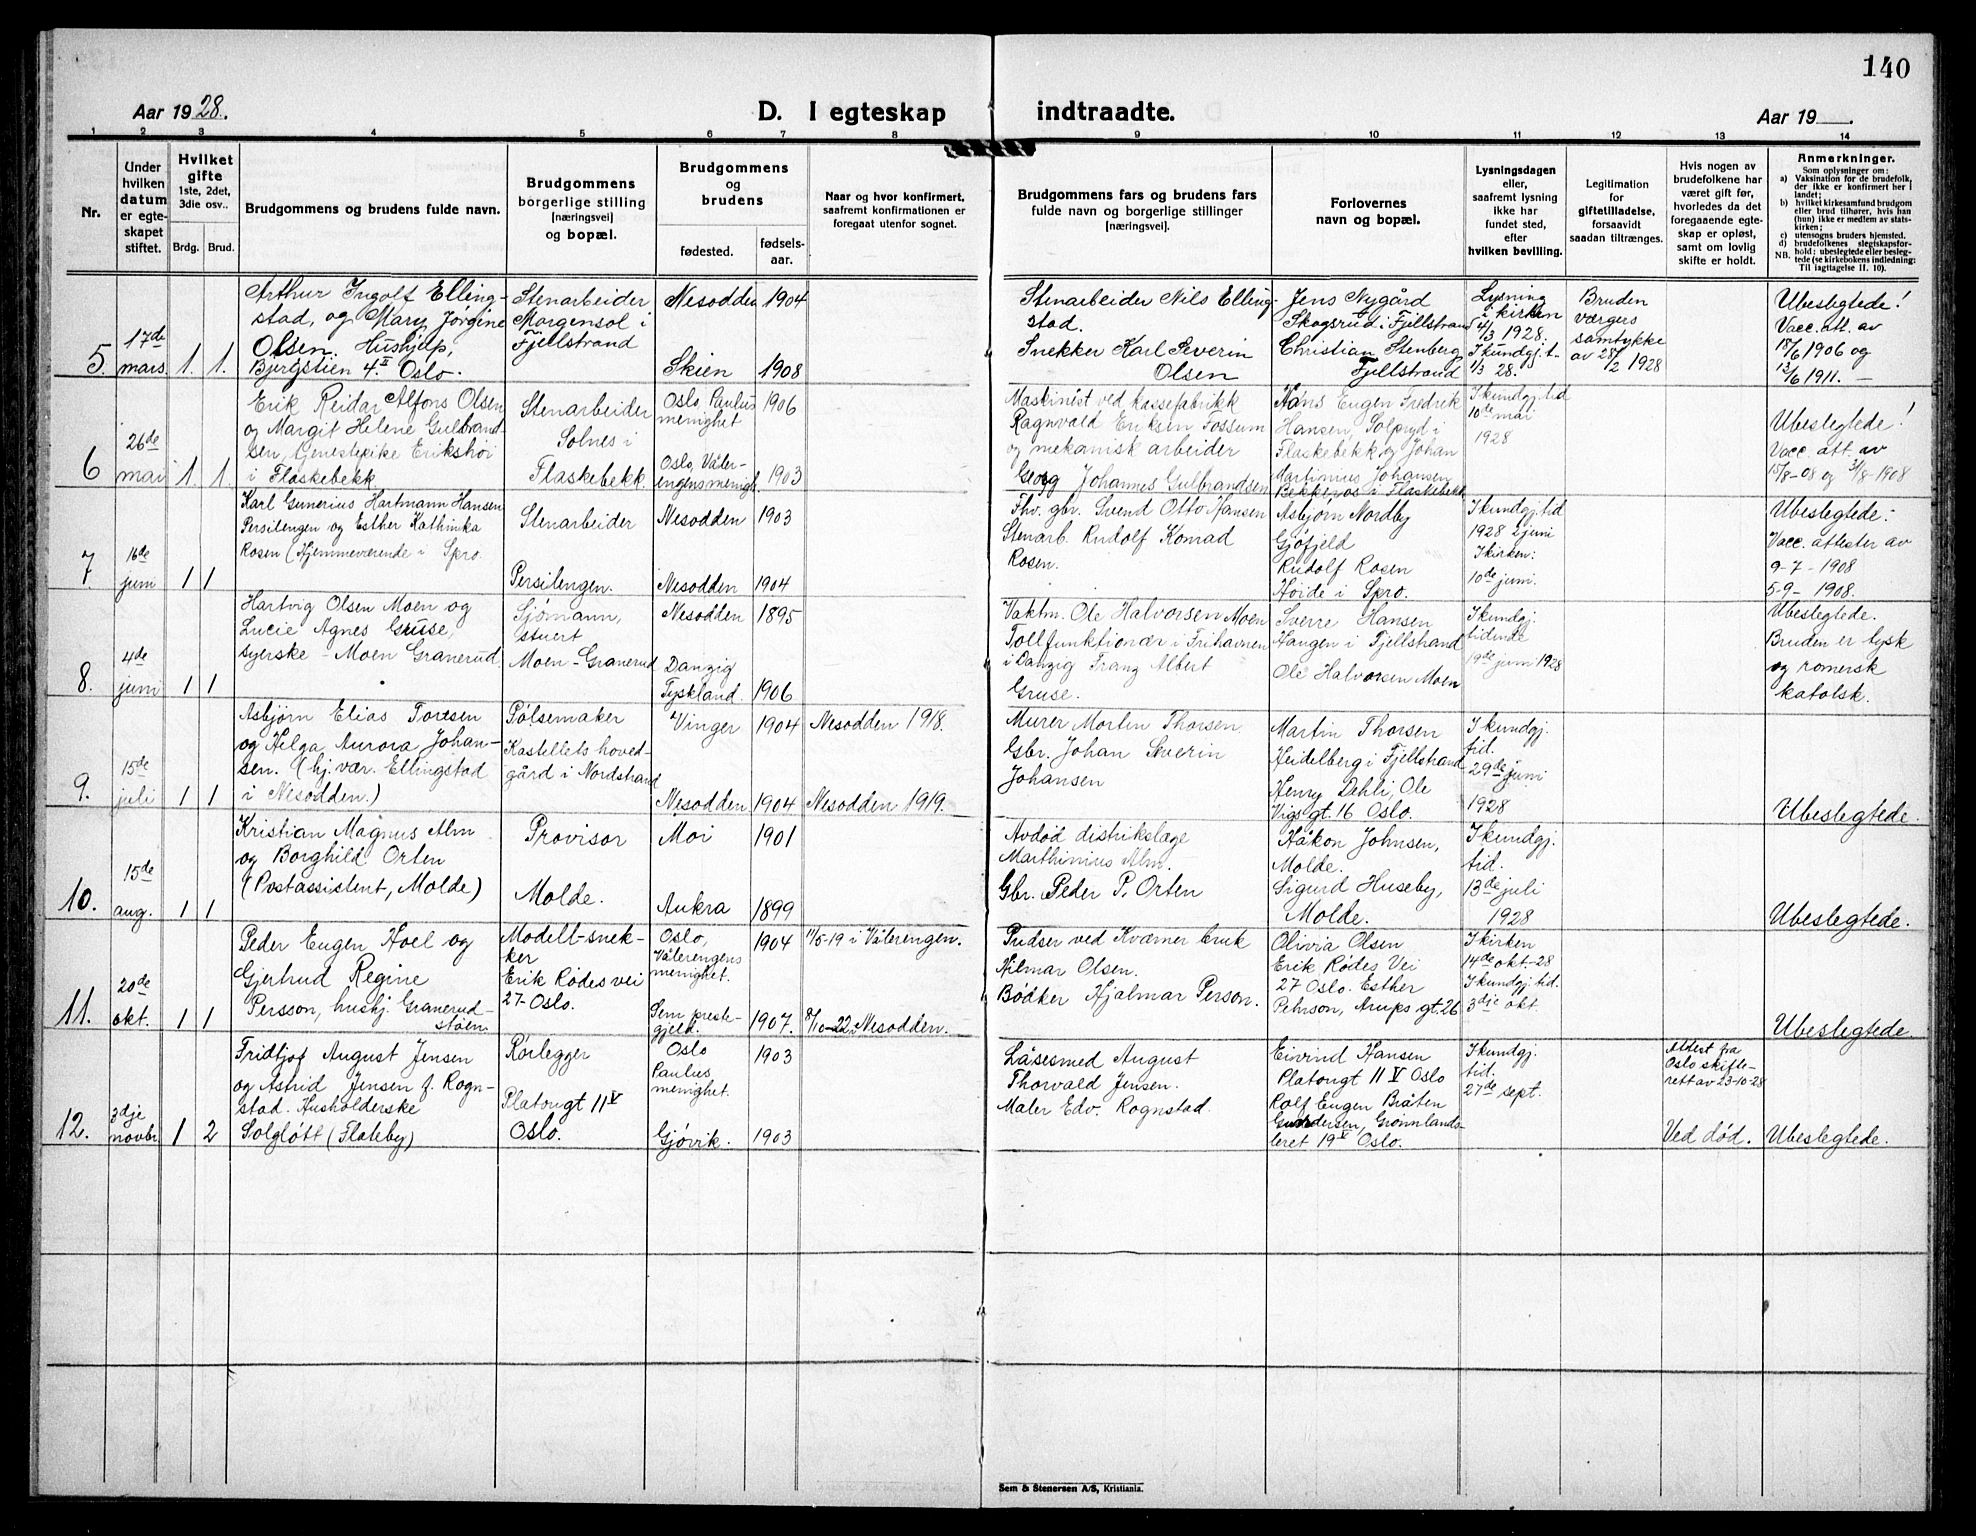 140
Aar 1928.
D. I egteskap
indtraadte.
Aar 19
1 2 3 4 5 6 7 8 9 10 11 12 13 14
Nr.
Under
hvilken
datum
er egte-
skapet
stiftet.
Hvilket
gifte
1ste, 2det,
3die osv..
Brdg. Brud.
Brudgommens og brudens fulde navn.
Brudgommens
borgerlige stilling
[næringsvei]
og bopæl.
Brudgommens
og
brudens
fødested.
fødsels-
aar.
Naar og hvor konfirmert,
saafremt konfirmationen er
foregaat utenfor sognet.
Brudgommens fars og brudens fars
fulde navn og borgerlige stillinger
[næringsvei].
Forlovernes
navn og bopæl.
Lysningsdagen
eller,
saafremt lysning
ikke har
fundet sted,
efter
hvilken bevilling.
Legitimation
for
giftetilladelse,
forsaavidt
saadan tiltrænges.
Hvis nogen av
brudefolkene har
været gift før,
hvorledes da det
foregaaende egte-
skap er opløst,
samt om lovlig
skifte er holdt.
Anmerkninger.
Som oplysninger om:
a) Vaksination for de brudefolk,
der ikke er konfirmert her i
landet;
b) hvilket kirkesamfund brudgom
eller brud tilhører, hvis han
(hun) ikke er medlem av stats-
kirken;
c) utensogns bruders hjemsted.
d) brudefolkenes slegtskapsfor-
hold: ubeslegtede eller besleg-
NB. tede (se kirkebokens indledning:
Til iagttagelse II. 10).
5.
17de
mars
1. 1.
Arthur Ingolf Elling-
stad, og Mary Jørgine
Olsen. Hushjelp,
Bjergstien 4.II Oslo.
Stenarbeider
Morgensol i
Fjellstrand
Nesodden 1904
Skien 1908
Stenarbeider Nils Elling-
stad.
Snekker Karl Severin
Olsen
Jens Nygård
Skogsrud i Fjellstrand
Christian Stenberg
Fjellstrand
Lysning
i kirken
4/3 1928.
I kundgj. t.
1/3 28.
Bruden
værgers
samtykke
av 28/2 1928
Ubeslegtede!
Vacc. att. av
18/6 1906 og
13/6 1911. —
6
26de
mai
1. 1.
Erik Reidar Alfons Olsen
og Margit Helene Gulbrand-
sen,
i Flaskebekk.
Stenarbeider
Solnes i
Flaskebekk.
Oslo, Paulus
menighet
1906
Oslo, Våler-
engens menigh.
1903
Maskinist ved kassefabrikk
Ragnvald Eriksen Fossum
og mekanisk arbeider
Georg Johannes Gulbrandsen
Hans Eugen Fredrik
Hansen, Solpryd i
Flaskebekk og Johan
Martinius Johansen
i Flaskebekk
I kundgj. tid
10de mai
1928
Ubeslegtede!
Vacc. att. av
15/8-08 og 31/8-1908
7
16de
juni
1 1
Karl Gunerius Hartmann Hansen
Persilengen og Esther Kathinka
Rosen (Hjemmeværende i Spro.
Stenarbeider
Persilengen.
Nesodden 1903
Nesodden 1904
Fhv. gbr. Svend Otto Hansen
Stenarb. Rudolf Konrad
Rosen.
Asbjørn Nordby
Gjøfjeld
Rudolf Rosen
Høide i Spro.
I kundgj. tid
1928 2 juni
I kirken:
10de juni.
Ubeslegtede:
Vacc. attester av
9-7-1908
5-9-1908.
8.
4de
juni
1 1
Hartvig Olsen Moen og
Lucie Agnes Gruse,
syerske - Moen Granerud
Sjømann,
stuert
Moen - Granerud
Nesodden 1895
Danzig
Tyskland. 1906
Vaktm. Ole Halvorsen Moen
Tollfunktionær i Frihavnen
i Danzig Franz Albert
Gruse.
Sverre Hansen
Haugen i Fjellstrand
Ole Halvorsen Moen
I kundgj.
tidende
19de juni 1928
Ubeslegtede.
Bruden er tysk
og romersk
katolsk.
9.
15de
juli
1 1
Asbjørn Elias Toresen
og Helga Aurora Johan-
sen. (hj. vær. Ellingstad
i Nesodden.)
Pølsemaker
Kastellets hoved-
gård i Nordstrand
Vinger 1904 Nesodden 1918.
Nesodden 1904 Nesodden 1919.
Murer Morten Thorsen
Gbr. Johan Severin
Johansen
Martin Thorsen
Heidelberg i Fjellstrand
Henry Dehli, Ole
Vigs gt. 16 Oslo.
I kundgj.
tid.
29de juni
1928
Ubeslegtede.
10.
15de
aug.
1 1
Kristian Magnus Alm
og Borghild Orten
(Postassistent, Molde)
Provisor
Molde.
Moi 1901
Aukra 1899
Avdød distrikslæge
Marthinius Alm.
Gbr. Peder P. Orten
Håkon Johnsen,
Molde.
Sigurd Huseby,
Molde.
I kundgj.
tid.
13de juli
1928
Ubeslegtede.
11.
20de
okt.
1 1
Peder Eugen Hoel og
Gjertrud Regine
Persson, hushj. Granerud-
støen
Modell-snek-
ker
Erik Rødes vei
27-Oslo.
Oslo,
Vålerengens
menighet.
1904 11/5-19 i Vålerengen.
Sem preste-
gjeld.
1907. 8/10-22 Nesodden.
Pudser ved Kværner bruk
Hilmar Olsen.
Bødker Hjalmar Person.
Olivia Olsen
Erik Rødes Vei
27 Oslo. Esther
Pehrson, Arups gt. 26
I kirken
14de okt.-28
I kundgj. tid.
3dje okt.
Ubeslegtede
12.
3dje
novbr
1 2
Fridtjof August Jensen
og Astrid Jensen f. Rogn-
stad. Husholderske
Solgløtt (Flateby)
Rørlegger
Platougt 11 V
Oslo.
Oslo
Paulus
menighet.
1903
Gjøvik. 1903
Låsesmed August
Thorvald Jensen.
Maler Edv. Rognstad.
Eivind Hansen
Platougt 11 V Oslo
Rolf Eugen Bråten
Gundersen, Grønnlands-
leret 19 V Oslo.
I kundgj.
tid.
27de sept.
Attest fra
Oslo skifte-
rett av 23-10-28
Ved død.
Ubeslegtede.
Sem & Stenersen A/S, Kristiania.